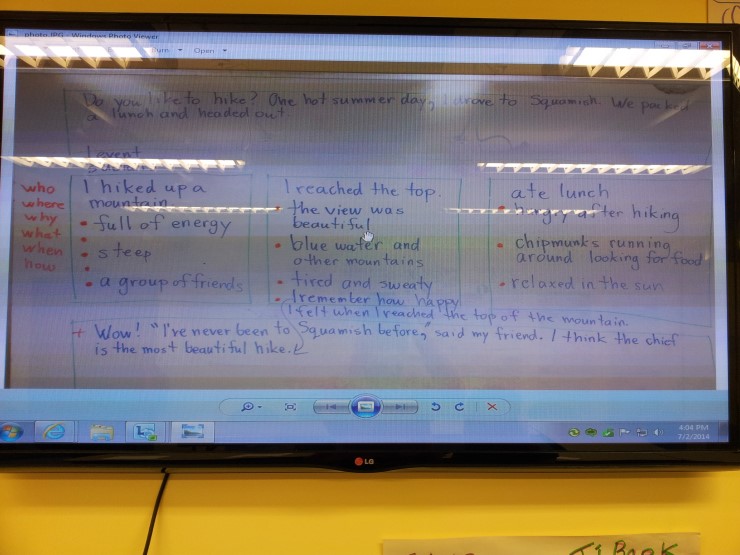 photo.JPG - Windows Photo Viewer
Burn Open
Do you like to hike? One hot summer day, I drove to Squamish. We packed
a lunch and headed out.
1 event
who
where
why
what
when
how
I hiked up a
mountain
• full of energy
•
• steep
•
• a group of friends
I reached the top.
• the view was
beautiful
• blue water and
other mountains
• tired and sweaty
• I remember how happy
I felt when I reached the top of the mountain.
ate lunch
• hungry after hiking
• chipmunks running
around looking for food
• relaxed in the sun
+ Wow! "I've never been to Squamish before," said my friend. I think the chief
is the most beautiful hike.
4:04 PM
7/2/2014
LG